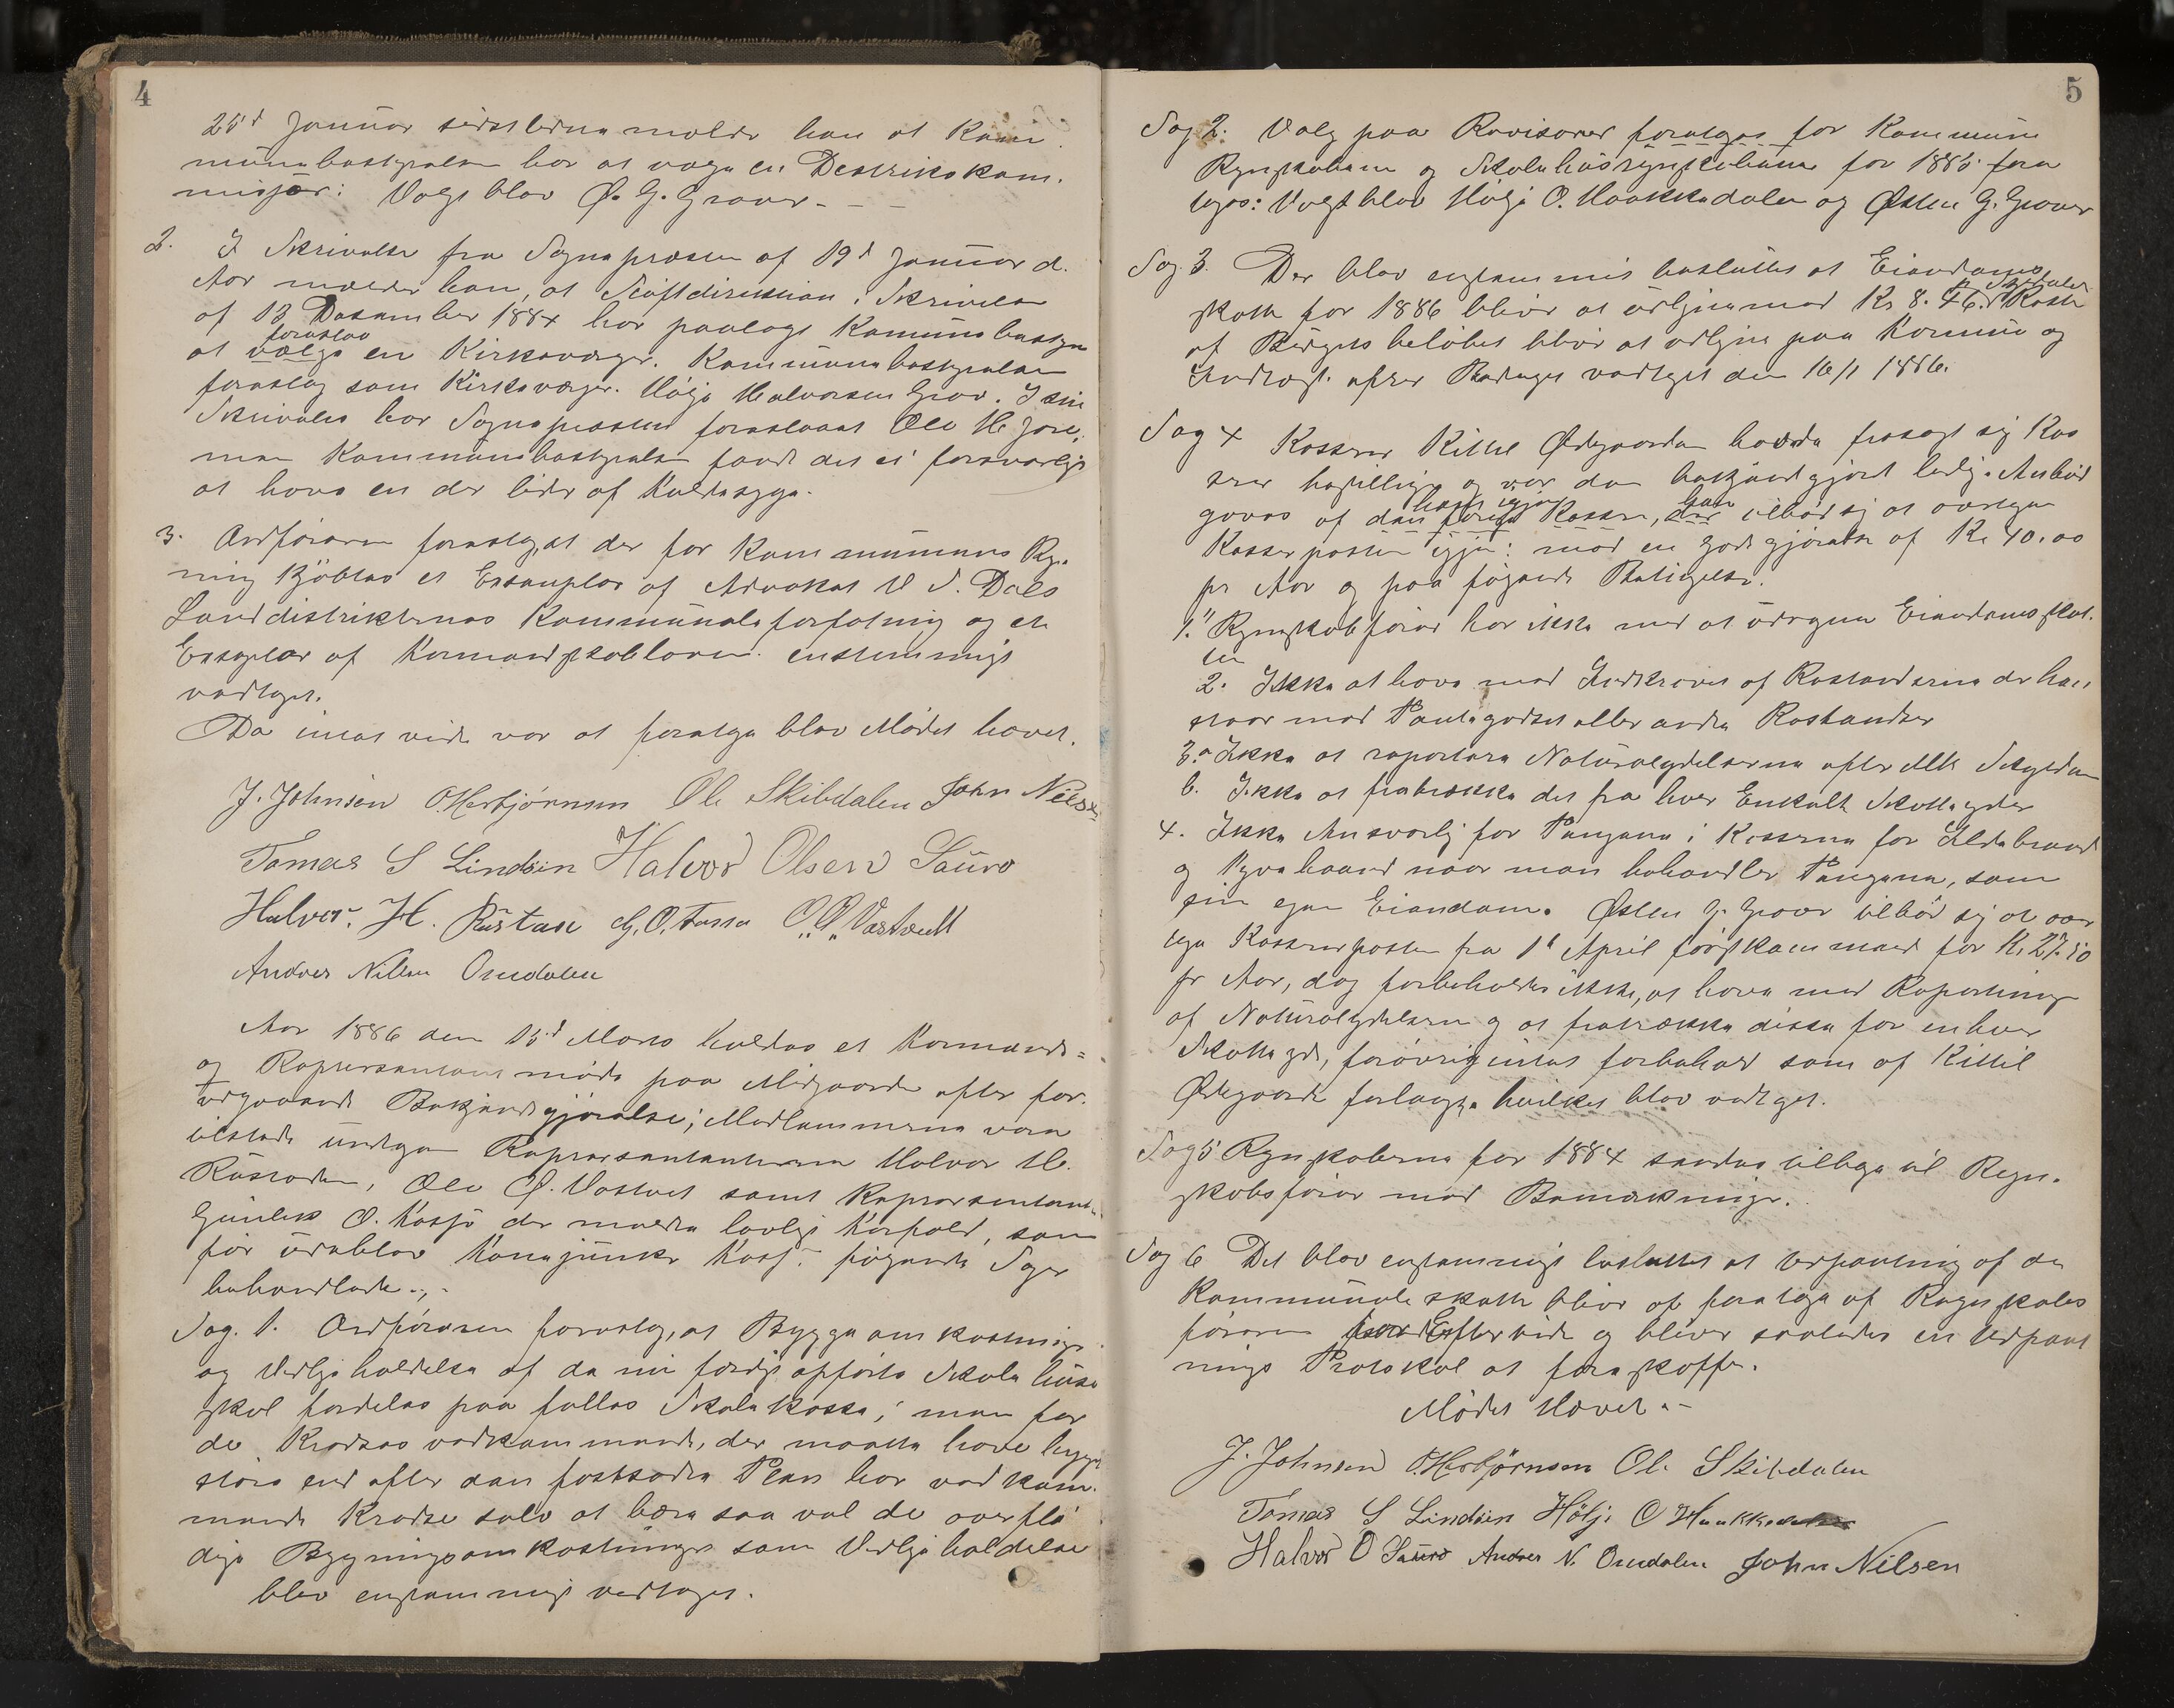 4
25d Januar sidstledne melder han at Kom
munebestyrelsen har at vælge en Destrikskom.
misjær: Valgt blev Ø. G. Graver. - -
2. I Skrivelse fra Sognepræsten af 19d Januar d.
Aar melder han, at Stiftdirektion i Skrivelse
af 13 Desember 1884 har paalagt Komunebestyr
foreslaa
at vælge en Kirkeværge. Kommunebestyrelsen
foreslog som Kirkeværge. Hölje Halvorsen Grov. I sin
Skrivelse har Sognepresten foreslaaet Ole H Jore,
men Kommunebestyrelsen fandt det ei forsvarligt
at have en der lider af Kuldesyge.
3. Ordföreren foreslog, at der for Kommunens Reg.
ning kjöbtes et Exsemplar af Advokat U S. Dals
Landdistrikternes Kommunaleforfatning og et
Exseplar af Formandskabloven. enstemmigt
vedtaget.
Da intet vider var at foretage blev Mödet hævet.
J. Johnsen O. Herbjörnsen Ole Skibdalen John Nielsen
Tomas S Lindsin Halvor Olsen Sauro
Halvor. H. Rustan G. O. Fosse O. Ø. Vastveit
Andres Nilsen Omdalen
Aar 1886 den 15d Marts holdtes et Formands=
og Representantmöde paa Midgaarden efter for.
udgaaende Bekjendtgjörelse; Medlemmerne vare
tilstede undtagen Representanterne Halvor H.
Rustaden, Ole Ø. Vastveit samt Representant
Gunlek O. Kasjö der meldte lovligt Forfald, som
för udeblev Hans Kasj. fölgende Sager
behandlede.,.
Sag. 1. Ordföreren foreslog, at Byggeomkostninger
og Vedligeholdelse af de nu færdig opförte Skolehuse
skal fordeles paa fælles Skolekasse; men for
de Kredses vedkommende, der maatte have bygget
större end efter den fastsadte Plan har vedkom.
mende Kredse selv at bære saa vel de overflö
dige Bygningsomkostninger som Vedligeholdelse
blev enstemmigt vedtaget.
5
Sag 2. Valg paa Revisorer foretages for Kommune
Regnskaberne og Skolehusregnskaberne for 1885 fore
toges: Valgt blev Hölje O. Haukkedalen og Østen G. Graver
Sag 3. Der blev enstemmig besluttet at Eiendoms
skatten for 1886 bliver at udligne med Kr 8.46. p Skylddaler Resten
af Budgets belöbet bliver at udligne paa Formue og
Indtægt. efter Budget vedtaget den 16/1 1886.
Sag 4 Kasserer Kittil Ødegaarden havde frasagt sig Kas
serer bestilling og var den bekjendtgjort ledig. Anbud
havt igjen han
gaves af den förige Kasser, der tilböd sig at overtage
Kasserposten igjen: mod en godtgjörelse af Kr 40.00
pr Aar og paa fölgende Betingelse.
1." Regnskabsförer har ikke med at udregne Eiendomsskat.
ten
2. Ikke at have med Indkrævet af Restanserne der han
staar med Pantegodset eller andre Restandser
3.a Ikke at reportere Naturalydelserne efter Mtr Skylden
b. Ikke at fratrække det fra hver Enkelt Skatteyder
4. Ikke Ansvarlig for Pengene i Kasserne for Ildebrand
og Tyvehaand naar man behandler Pengene, som
sin egen Eiendom. Østen G. Graver tilböd sig at over
tage Kassererposten fra 1d April förstkommende for Kr 27.50
pr Aar, dog forbeholder ikke, at have med Reportering
af Naturalydelsen og at fratrække disse for enhver
Skatteyder, forövrig intet forbehold som af Kittil
Ødegaarden forlagte hvilket blev vedtaget.
Sag 5 Regnskaberne for 1884 sendes tilbage til Regn.
skabsförer med Bemærkninger.
Sag 6 Det blev enstemmigt besluttet at Udpantning af de
kommunale skatter bliver at foretage af Regnskabs
föreren for Eftertiden og bliver saaledes en Udpant
nings Protokol at foreskaffe.
Mödet Hævet.-
J. Johnsen O. Herbjörnsen Ole Skibdalen
Tomas S Lindsin Hölje O Haukkedalen
Halvor O Sauro Andres N. Omdalen John Nilsen